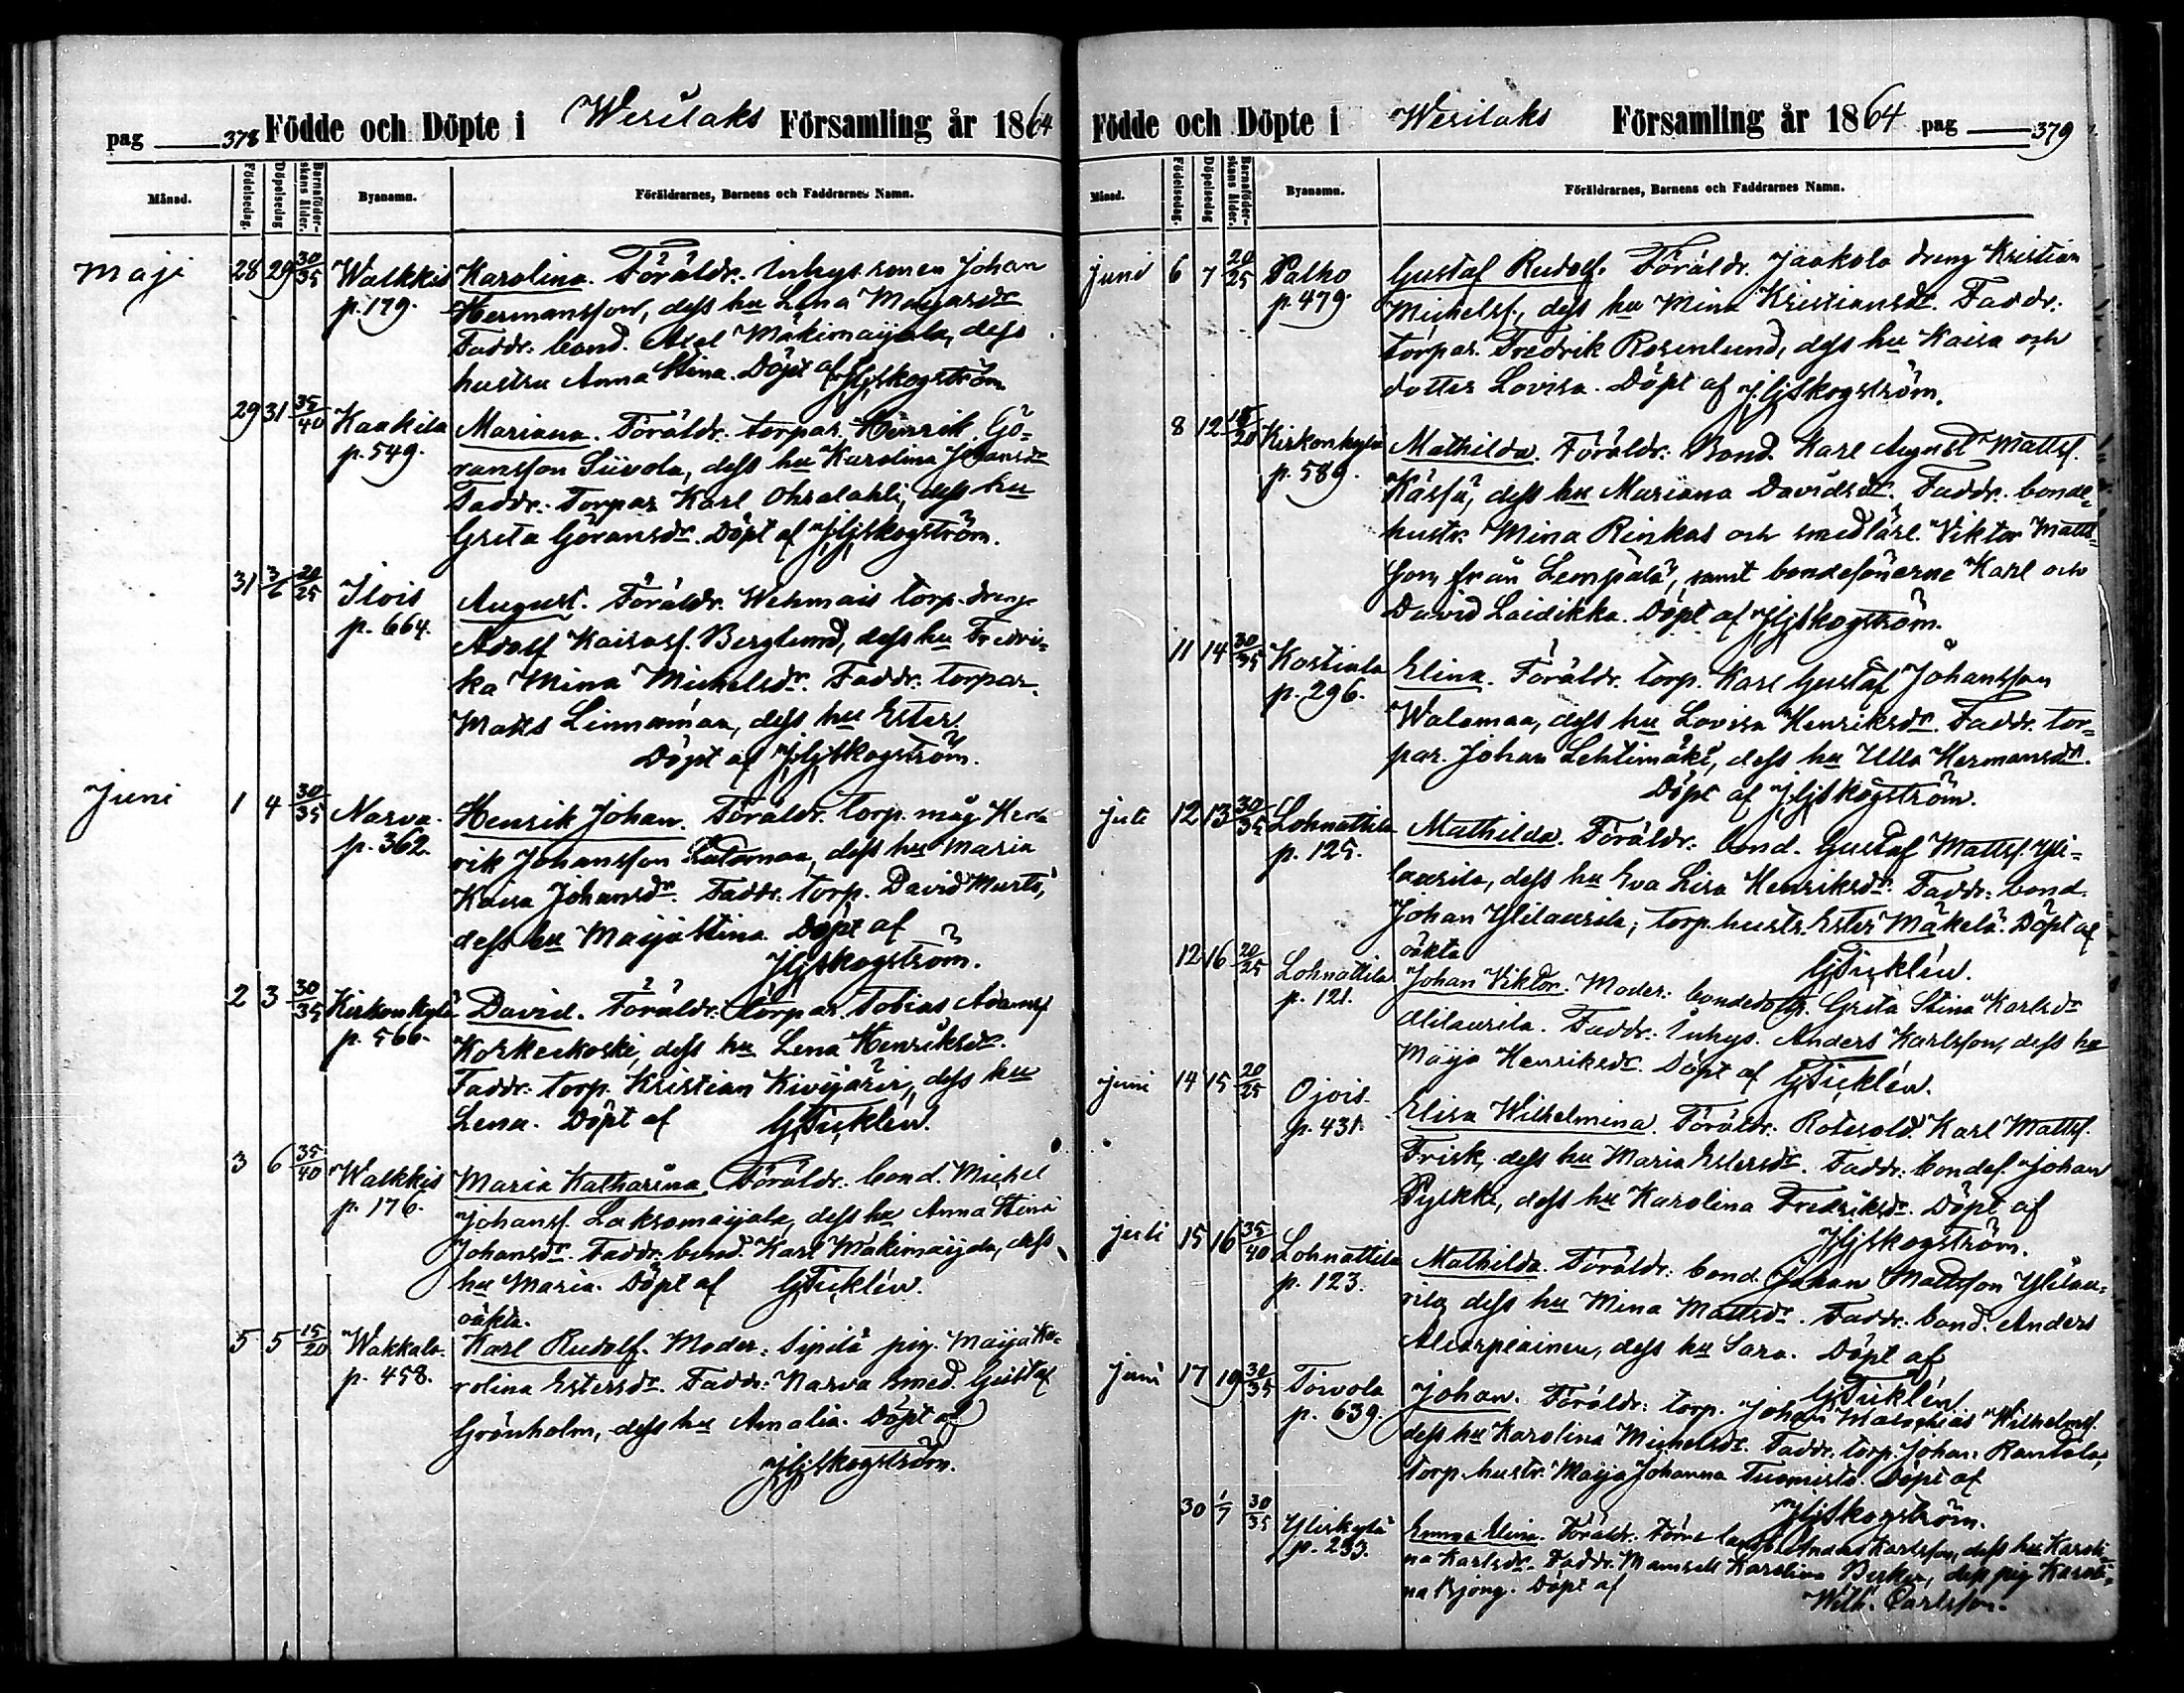 pag 378 Födde och Döpte i Wesilaks Församling år 1864
Månad. Födelsedag. Döpelsedag Barnaföderskans ålder. Byanamn. Föräldrarnes, Barnens och Faddrarnes Namn.
Maji 28 29 30/35 Walkkis p. 179. Karolina. Föräldr. Inhys. sonen Johan
Hermansson, dess hu Lena Magdr
Faddr. bond. Axel Mäkimaijala, dess
hustru Anna Stina. Döpt af JHjskogström
29 31 35/40 Kaakila p. 549. Mariana. Föräldr. torpar. Henrik Gö-
ransson Siivola, dess hu Karolina Johansdr
Faddr. Torpar Karl Ohralahti, dess hu
Greta Göransdr. Döpt af JHjskogström.
31 3/6 20/25 Ilois p. 664. August. Föräldr. Wehmais torp. dreng
Adolf Kaisasf. Berglund, dess hu Fredri-
ka Mina Michelsdr. Faddr. torpar.
Matts Linnainmaa, dess hu Ester.
Döpt af JHjskogström.
Juni 1 4 30/35 Narva. p. 362. Henrik Johan. Föräldr. torp. måg Hen-
rik Johansson Latomaa, dess hu Maria
Kaisa Johansdr. Faddr. torp. David Murto,
dess hu Maija Stina. Döpt af
JHjskogström.
2 3 30/35 Kirkonkylä p. 566. David. Föräldr. torpar. Tobias Adamsf
Koskeskoski, dess hu Lena Henriksdr.
Faddr. torp. Kristian Kivijärvi, dess hu
Lena. Döpt af GTicklén.
3 6 35/40 Walkkis p. 176. Maria Katharina. Föräldr. bond. Michel
Johansf. Laksomaijala, dess hu Anna Stina
Johansdr. Faddr. bond. Karl Mäkimaijala, dess
hu Maria. Döpt af GTicklén.
oäkta.
5 5 15/20 Wakkala. p. 458. Karl Rudolf. Moder: Sipilä pig. Maija Ka-
rolina Estersdr. Faddr. Narva smed. Gustaf
Grönholm, dess hu Amalia. Döpt af
JHjskogström.
Födde och Döpte i Wesilaks Församling år 1864 pag 379
Månad. Födelsedag. Döpelsedag Barnaföderskans ålder. Byanamn. Föräldrarnes, Barnens och Faddrarnes Namn.
Juni 6 7 20/25 Palho p. 479. Gustaf Rudolf. Föräldr. Jaakola dreng Kristian
Michelsf., dess hu Mina Kristiansdr. Faddr.
torpar. Fredrik Rosenlund, dess hu Kaisa och
dotter Lovisa. Döpt af JHjskogström.
8 12 15/20 Kirkonkylä p. 589. Mathilda. Föräldr. Bond. Karl August Mattsf.
Kässä, dess hu Mariana Davidsdr. Faddr. bonde-
hustr. Mina Rinkas och smedlärl. Viktor Matts-
son från Lempälä, samt bondesönerne Karl och
David Laidikka. Döpt af JHjskogström.
11 14 30/35 Kostiala p. 296. Elina. Föräldr. torp. Karl Gustaf Johansson
Walamaa, dess hu Lovisa Henriksdr. Faddr. tor-
par. Johan Lehtimäki, dess hu Ulla Hermansdr.
Döpt af JHjskogström.
Juli 12 13 30/35 Lohnattila p. 125. Mathilda. Föräldr. bond. Gustaf Mattsf. Yli-
laurila, dess hu Eva Lisa Henriksdr. Faddr. bond.
Johan Ylilaurila, torp. hustr. Ester Mäkelä. Döpt af
oäkta GTicklén.
12 16 20/25 Lohnattila p. 121. Johan Viktor. Moder: bondedottr. Greta Stina Karlsdr
Alilaurila. Faddr. Inhys. Anders Karlsson, dess hu
Maija Henriksdr. Döpt af GTicklén.
Juni 14 15 20/25 Ojois p. 431. Elisa Wilhelmina. Föräldr. Rotesold. Karl Mattsf.
Frisk, dess hu Maria Estersdr. Faddr. bondes. Johan
Pyskki, dess hu Karolina Fredriksdr. Döpt af
JHjskogström.
Juli 15 16 35/40 Lohnattila p. 123. Mathilda. Föräldr. bond. Johan Mattsson Ylilau-
rila, dess hu Mina Mattsdr. Faddr. bond. Anders
Aliarpiainen, dess hu Sara. Döpt af
GTicklén.
Juni 17 19 30/35 Toivola p. 639. Johan. Föräldr. torp. Johan Malachias Wilhelmsf.
dess hu Karolina Michelsdr. Faddr. torp. Johan Rantala,
torp. hustr. Maija Johanna Tuomisto. Döpt af
JHjskogström.
30 1/7 30/35 Yliskylä p. 233. Emma Elina. Föräldr. Anders Karlsson, dess hu Karoli-
na Karlsdr. Faddr. Mamsell Karolina, pig Karoli-
na Björg. Döpt af Wilh. Carlsson.